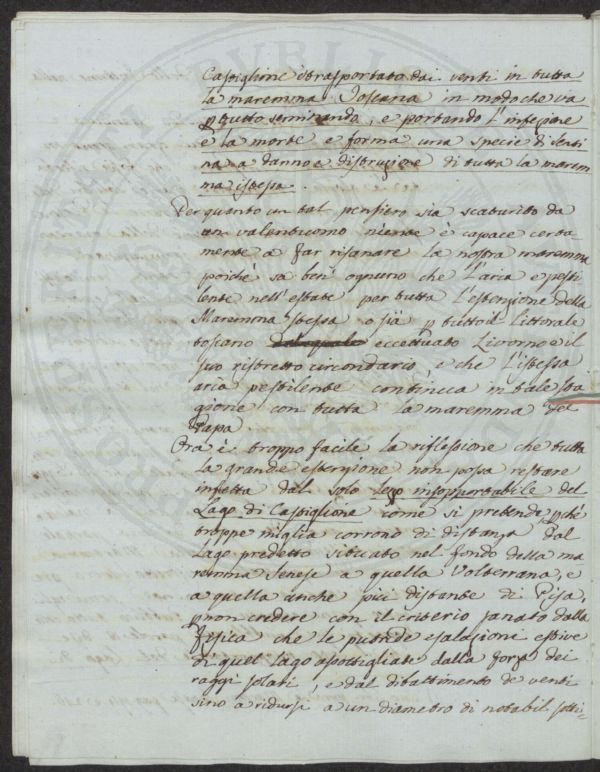 Castiglione è trasportato dai venti in tutta
la maremma Toscana in modo che va
p tutto seminando, e portando l'infezione
e la morte e forma una specie di senti
na a danno e distruzione di tutta la marem
ma istessa.
Per quanto un tal pensiero sia scaturito da
un valentuomo niente è capace certa-
mente a far risanare la nostra maremma
poichè sa ben' ognuno che l'aria è pesti
lente nell'estate per tutta l'estenzione della
Maremma stessa o sia p tutto il littorale
toscano eccettuato Livorno e il
suo ristretto circondario, e che l'istessa
aria pestilente continua in tale sta
gione con tutta la maremma del
Papa.
Ora è troppo facile la riflessione che tutta
la grande estenzione non possa restare
infetta dal solo insopportabile del
Lago di Castiglione come si pretende pchè
troppe miglia corrono di distanza dal
Lago predetto situato nel fondo della ma
remma Senese a quella Volterrana, e
a quella anche più distante di Pisa,
p non credere con il criterio sanato dalla
Fisica che le putride esalazioni estive
di quel lago assottigliate dalla forza dei
raggi solari, e dal dibattimento de venti
sino a ridursi a un diametro di notabil sotti=